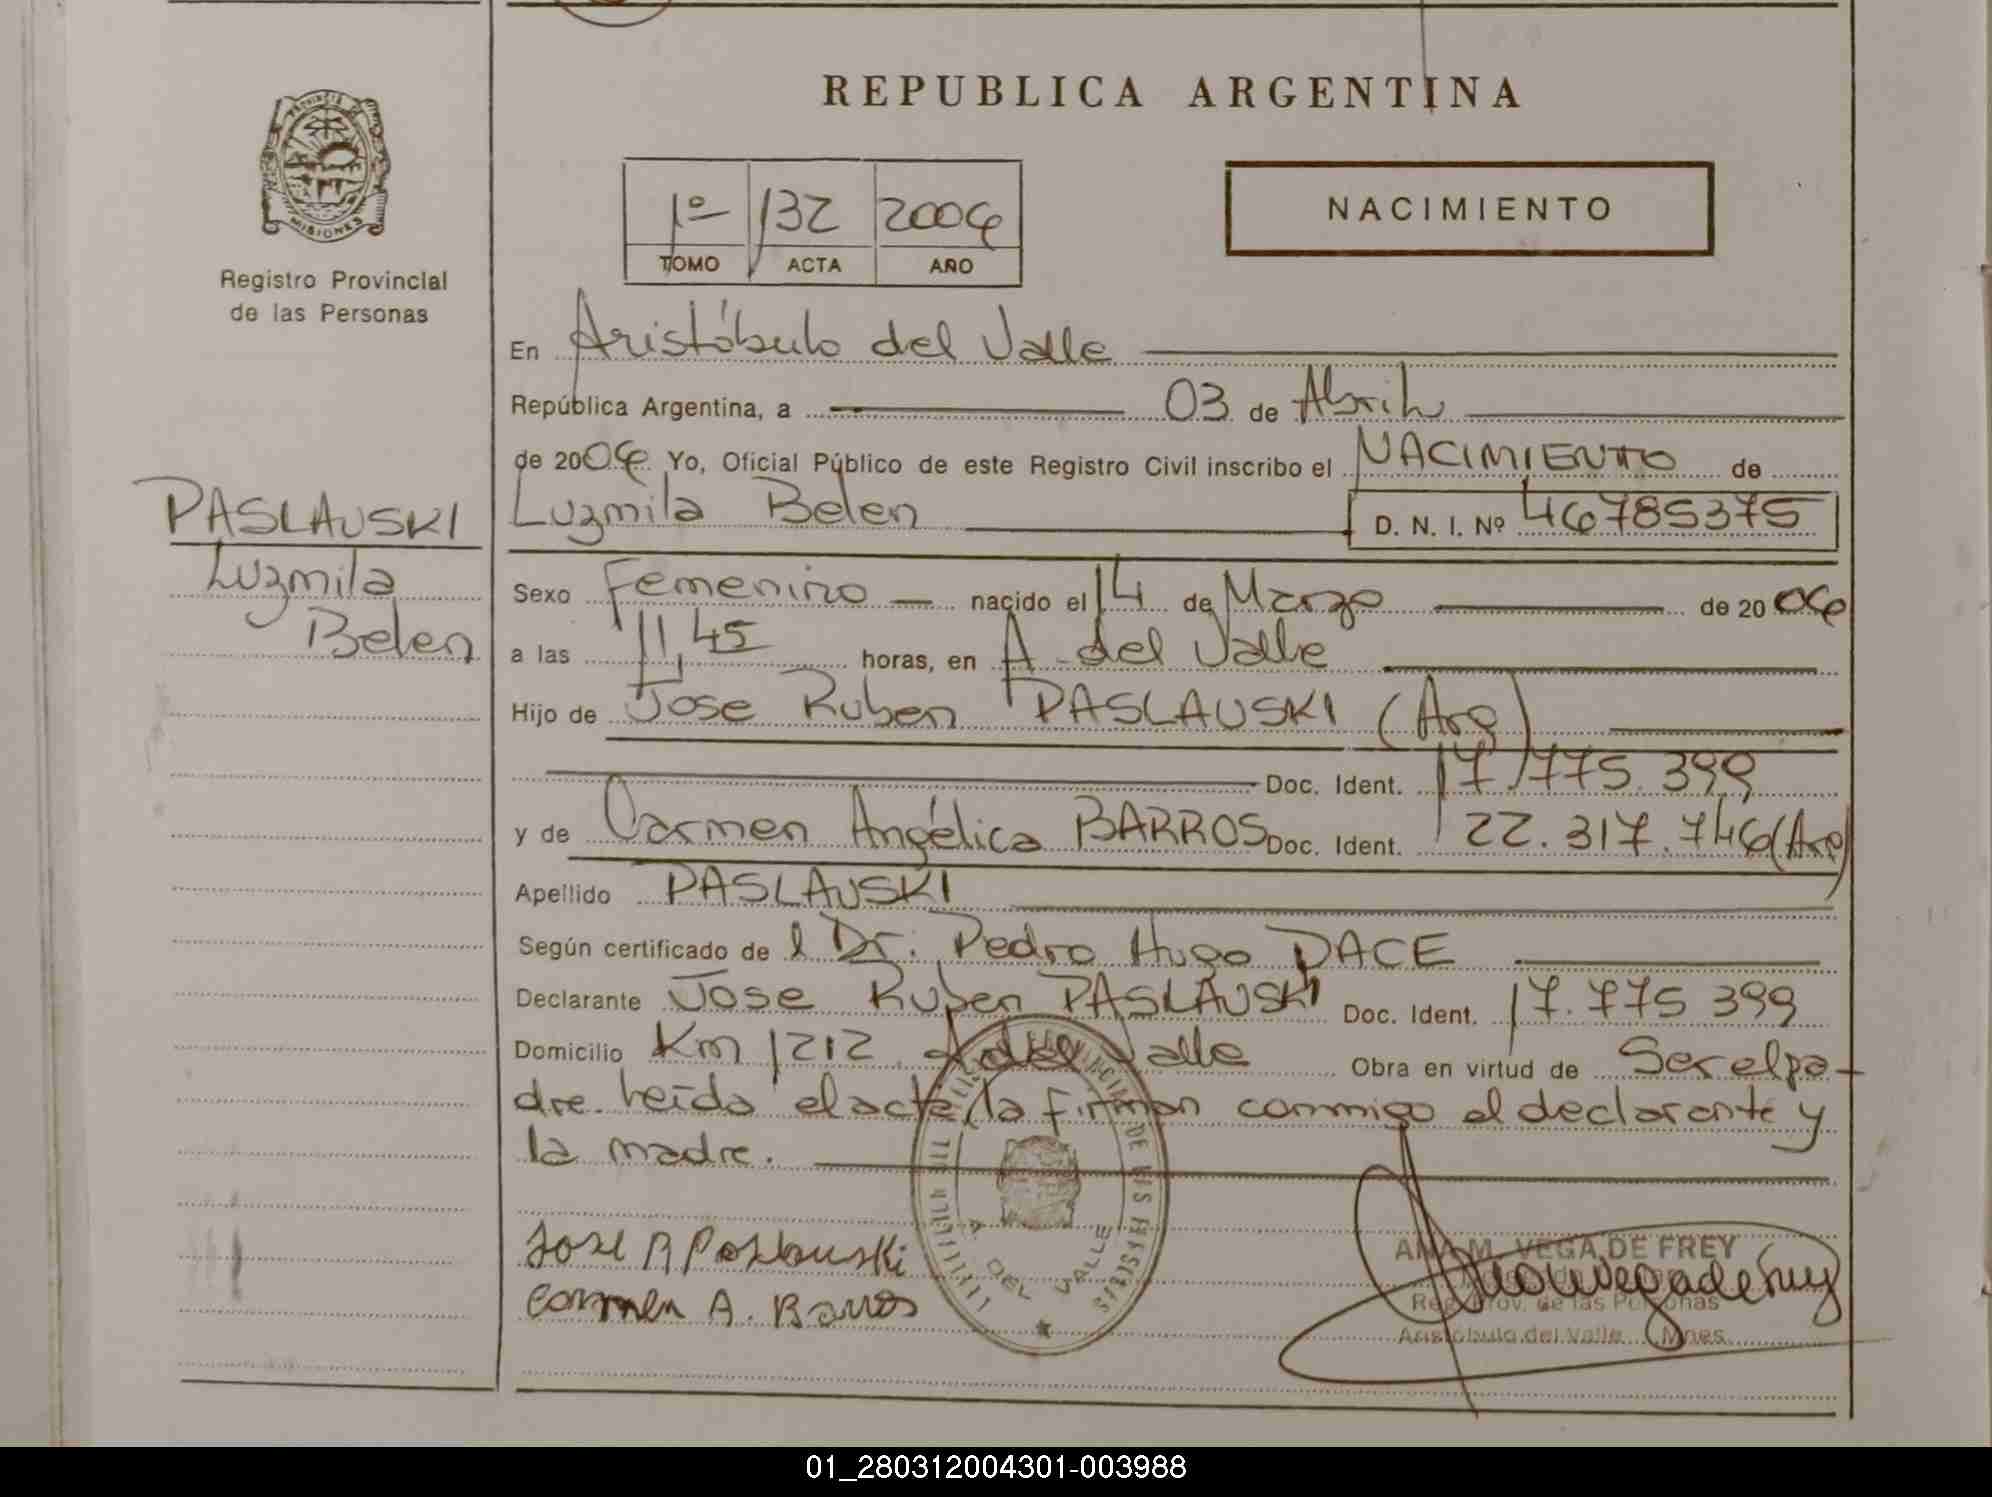 REPUBLICA ARGENTINA
PROVINCIA DE
MISIONES
Registro Provincial
de las Personas
1º 132 2006
TOMO ACTA AÑO
NACIMIENTO
En Aristóbulo del Valle
República Argentina, a 03 de Abril
de 2006 Yo, Oficial Público de este Registro Civil inscribo el NACIMIENTO de
PASLAUSKI
Luzmila
Belen
Luzmila Belen D. N. I. Nº 46785375
Sexo Femenino nacido el 14 de Marzo de 2006
a las 11,45 horas, en A. del Valle
Hijo de Jose Ruben PASLAUSKI (Arg)
Doc. Ident. 17.775.399
y de Carmen Angélica BARROS Doc. Ident. 22.317.746 (Arg)
Apellido PASLAUSKI
Según certificado de l Dr. Pedro Hugo DACE
Declarante Jose Ruben PASLAUSKI Doc. Ident. 17.775 399
Domicilio Km 1212 A. del Valle Obra en virtud de Ser el pa-
dre. Leída el acta, la firman conmigo el declarante y
la madre.
Jose R Paslauski
Carmen A. Barros
A. DEL VALLE
ANA M. VEGA DE FREY
Reg. Prov. de las Personas
Aristóbulo del Valle Mnes.
01_280312004301-003988